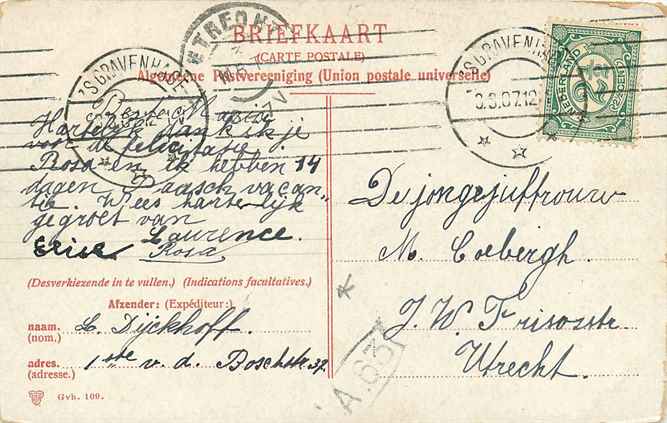 BRIEFKAART
(CARTE POSTALE)
Algemeene Postvereeniging (Union postale universelle)
UTRECHT
'S GRAVENHAGE
'S GRAVENHAGE
3.3.07.12
NEDERLAND
2½
CENT
Beste Marie
Hartelijk dank ik je
voor de felicitatie.
Rosa en ik hebben 14
dagen Paasch vacan-
tie. Wees hartelijk
gegroet van
Laurence.
Elise Rosa
De jongejuffrouw
M. Coebergh.
J. W. Frisostr
Utrecht.
(Desverkiezende in te vullen.) (Indications facultatives.)
Afzender: (Expéditeur:)
naam. L. Dijckhoff.
(nom.)
adres. 1ste v. d. Boschstr 37.
(adresse.)
Gvh. 109.
A.63